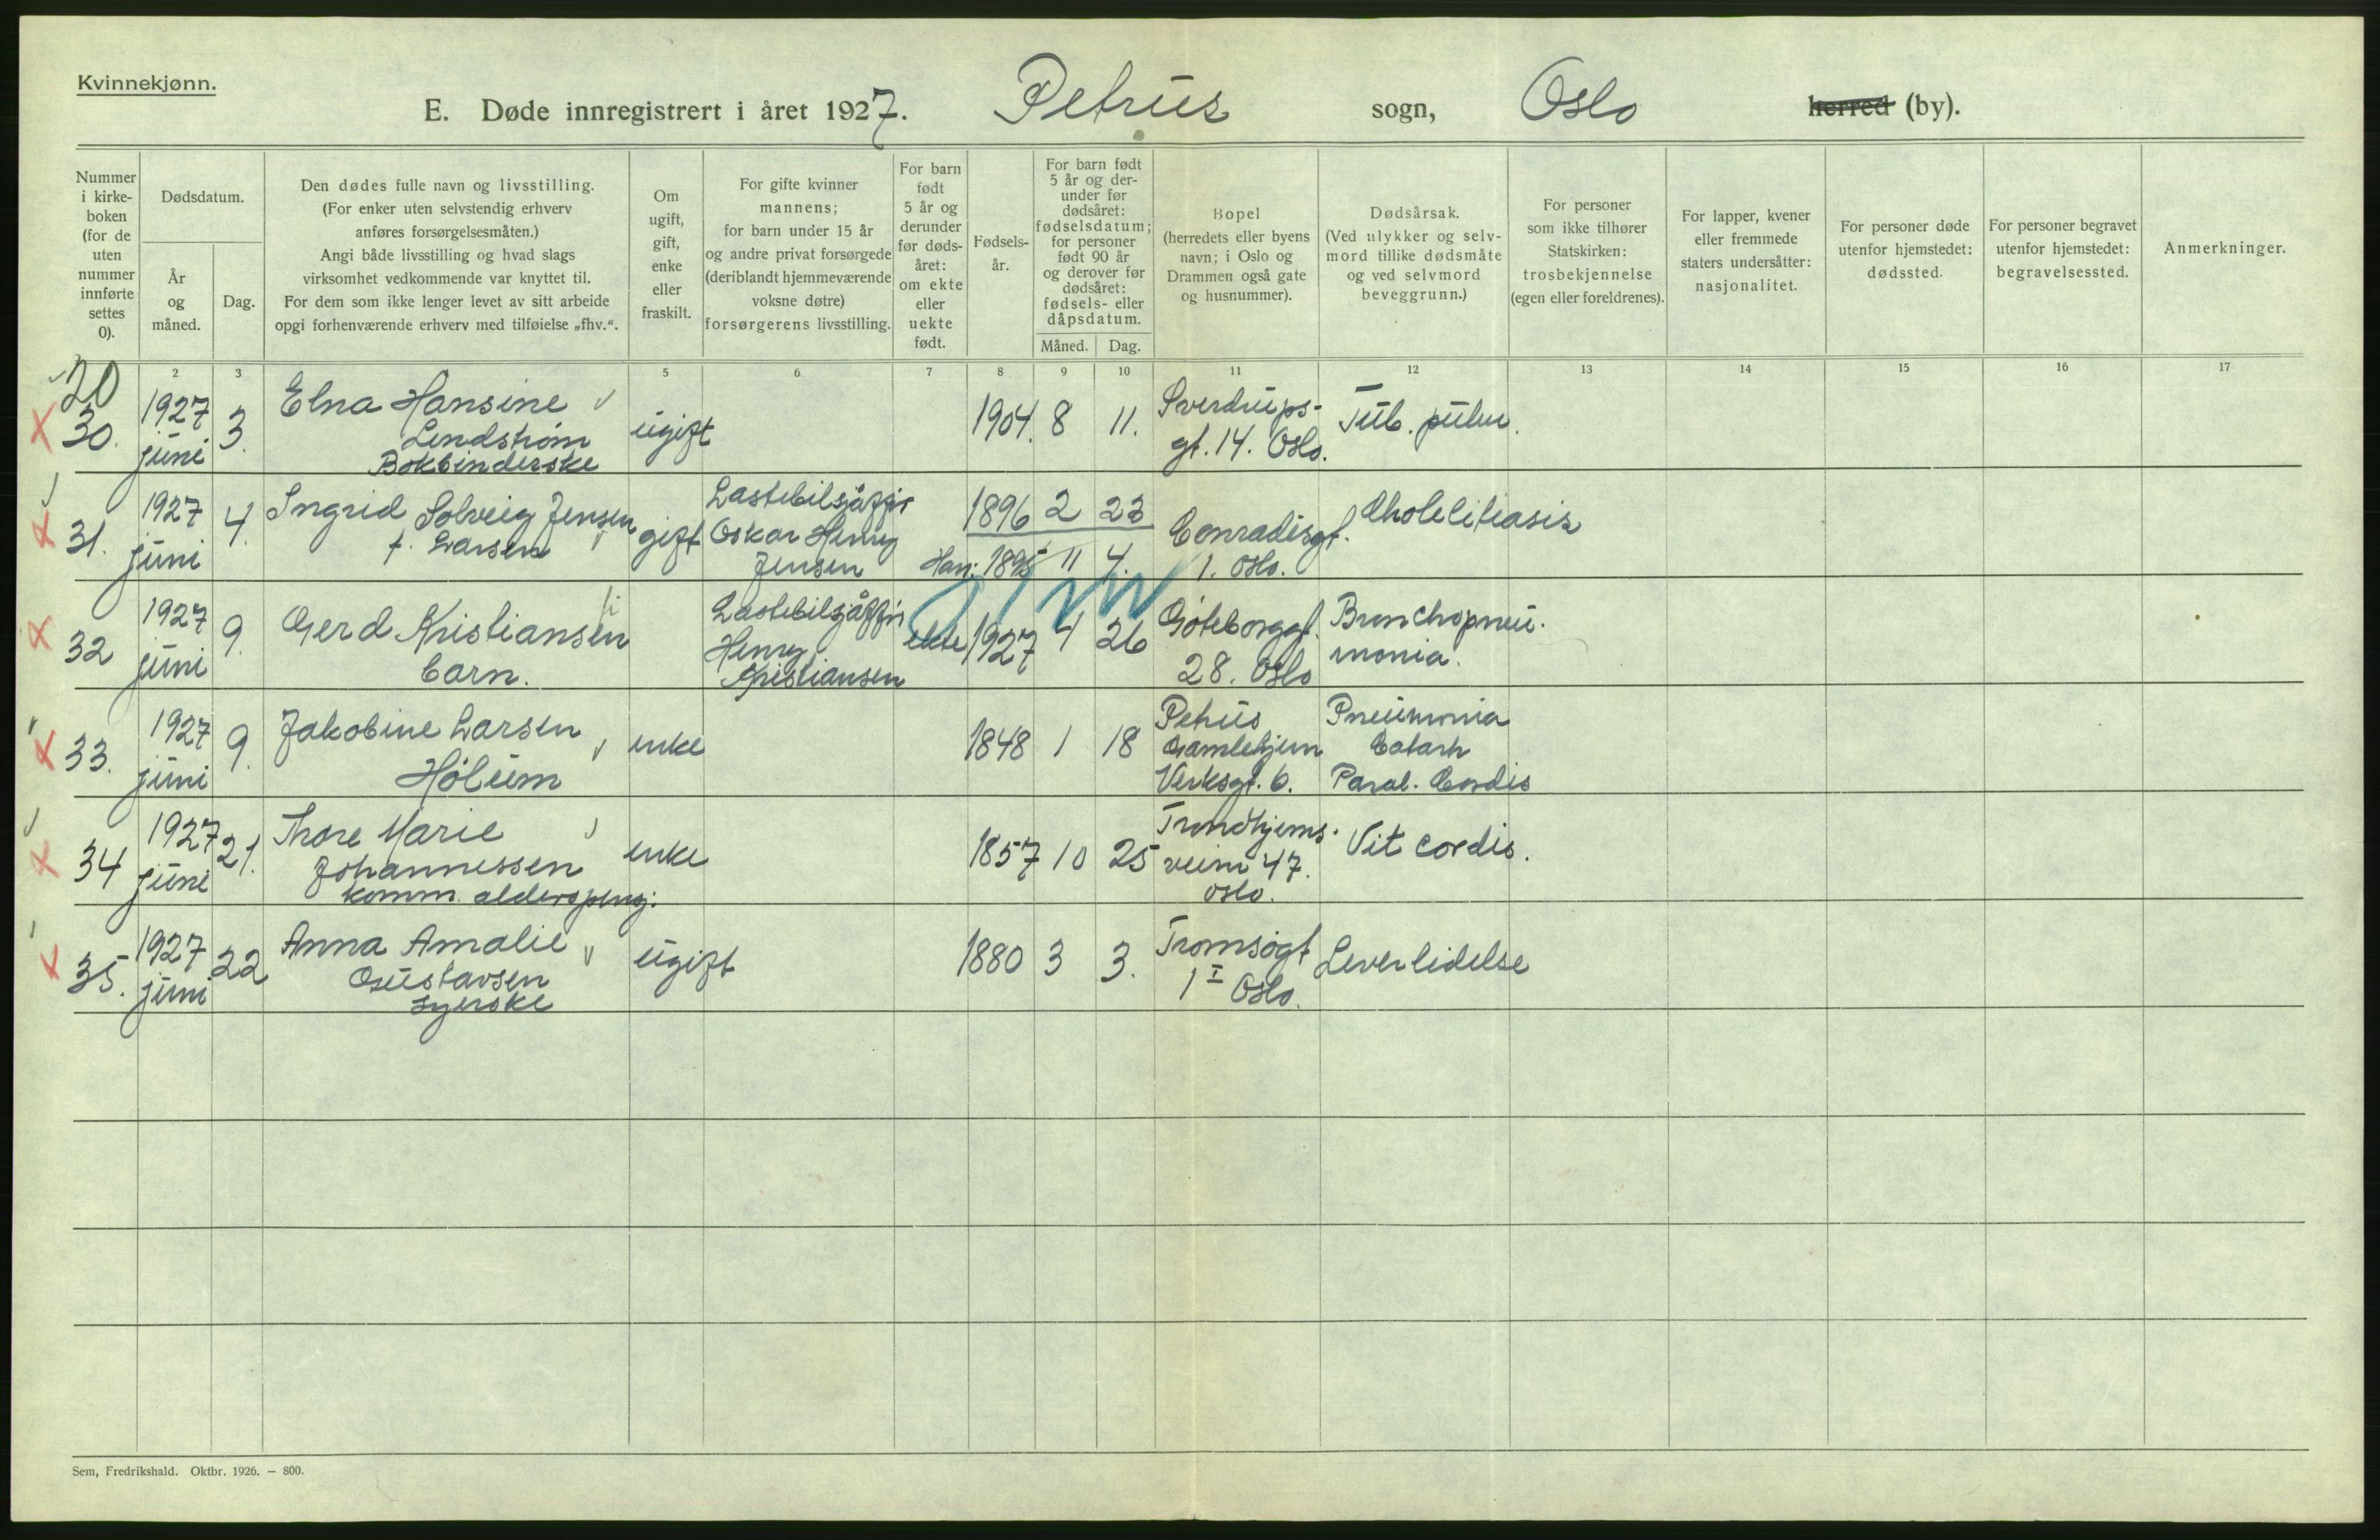 Kvinnekjønn.
E. Døde innregistrert i året 1927. Petrus sogn, Oslo herred (by).
Nummer i kirke-boken (for de uten nummer innførte settes 0).
Dødsdatum.
År og måned.
Dag.
Den dødes fulle navn og livsstilling.
(For enker uten selvstendig erhverv
anføres forsørgelsesmåten.)
Angi både livsstilling og hvad slags
virksomhet vedkommende var knyttet til.
For dem som ikke lenger levet av sitt arbeide
opgi forhenværende erhverv med tilføielse „fhv.“.
Om ugift, gift, enke eller fraskilt.
For gifte kvinner
mannens;
for barn under 15 år
og andre privat forsørgede
(deriblandt hjemmeværende
voksne døtre)
forsørgerens livsstilling.
For barn født 5 år og derunder før døds-året: om ekte eller uekte født.
Fødsels-år.
For barn født 5 år og der-under før dødsåret: fødselsdatum; for personer født 90 år og derover før dødsåret: fødsels- eller dåpsdatum.
Måned.
Dag.
Bopel
(herredets eller byens
navn; i Oslo og
Drammen også gate
og husnummer).
Dødsårsak.
(Ved ulykker og selv-
mord tillike dødsmåte
og ved selvmord
beveggrunn.)
For personer
som ikke tilhører
Statskirken:
trosbekjennelse
(egen eller foreldrenes).
For lapper, kvener
eller fremmede
staters undersåtter:
nasjonalitet.
For personer døde
utenfor hjemstedet:
dødssted.
For personer begravet
utenfor hjemstedet:
begravelsessted.
Anmerkninger.
2 3 5 6 7 8 9 10 11 12 13 14 15 16 17
20
30. 1927 juni 3. Elna Hansine Lendstrøm Bokbinderske ugift 1904. 8 11. Sverdrups-gt. 14. Oslo. Tub. pulm.
31. 1927 juni 4. Ingrid Solveig Jensen f. Larsen gift Lastebilsjåffør Oskar Henry Jensen 1896 2 23 Han: 1895 11 4. Conradisgt. 1. Oslo. Cholelitiasis
32 1927 juni 9. Gerd Kristiansen barn. Lastebilsjåffør Henry Kristiansen ekte 1927 4 26 Gøteborggt. 28. Oslo Bronchopneu-monia.
33. 1927 juni 9. Jakobine Larsen Hølum enke 1848 1 18 Petrus Gamlehjem Verksgt. 6. Pneumonia Catarh Paral. Cordis
34 1927 juni 21. Thore Marie Johannessen komm. alderspensj. enke 1857 10 25 Trondhjems-veien 47. Oslo. Vit cordis.
35. 1927 juni 22 Anna Amalie Gustavsen syerske ugift 1880 3 3. Tromsøgt 1 I Oslo. Leverlidelse
Sem, Fredrikshald. Oktbr. 1926. – 800.